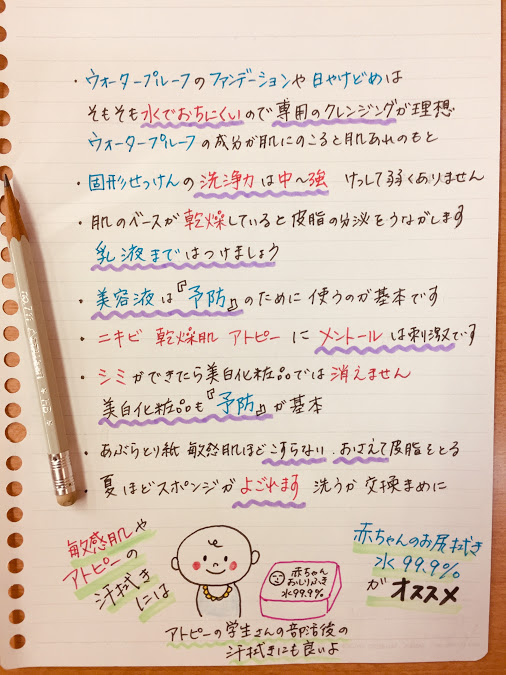 ・ウォータープルーフのファンデーションや日やけどめは
そもそも水でおちにくいので専用のクレンジングが理想
ウォータープルーフの成分が肌にのこると肌あれのもと
・固形せっけんの洗浄力は中〜強 けっして弱くありません
・肌のベースが乾燥していると皮脂の分泌をうながします
乳液まではつけましょう
・美容液は『予防』のために使うのが基本です
・ニキビ 乾燥肌 アトピーにメントールは刺激です
・シミができたら美白化粧品では消えません
美白化粧品も『予防』が基本
・あぶらとり紙 敏感肌ほどこすらない．おさえて皮脂をとる
・夏ほどスポンジがよごれます 洗うか交換まめに
敏感肌や
アトピーの
汗拭き
には
赤ちゃん
おしりふき
水99.9%
赤ちゃんのお尻拭き
水99.9%
がオススメ
アトピーの学生さんの部活後の
汗拭きにも良いよ